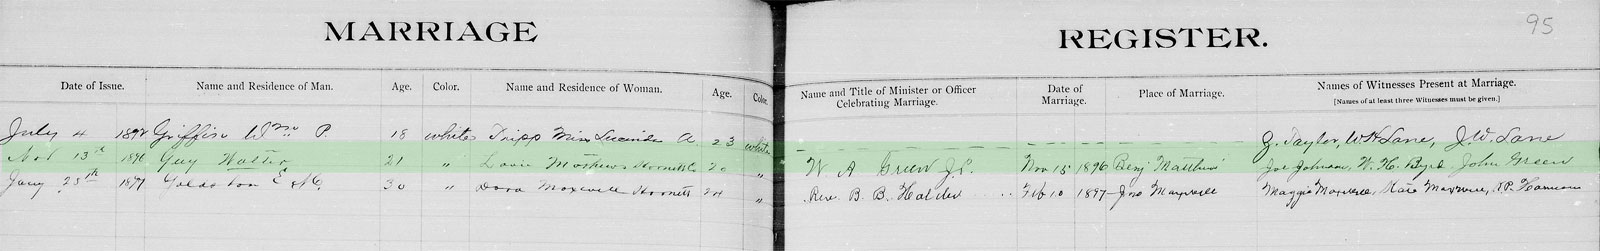 MARRIAGE REGISTER.
95
Date of Issue. Name and Residence of Man. Age. Color. Name and Residence of Woman. Age. Color. Name and Title of Minister or Officer Celebrating Marriage. Date of Marriage. Place of Marriage. Names of Witnesses Present at Marriage.
[Names of at least three Witnesses must be given.]
July 4 189 Griffin Wm P. 18 white Tripp Miss Lucinda A 23 white Z. Taylor, W H Lane, J. W. Lane
Nov 13th 1896 Guy Walter 21 " Mathews 20 " W. A Green J.P. Nov 15 1896 Benj Matthews Joe Johnson, W. H. Byrd John Green
Jany 25th 1897 Goldston E 30 " Dora Maxwell 24 " Rev. B. B. Holder Feb 10 1897 Jno Maxwell Maggie Maxwell, Kate Maxwell,